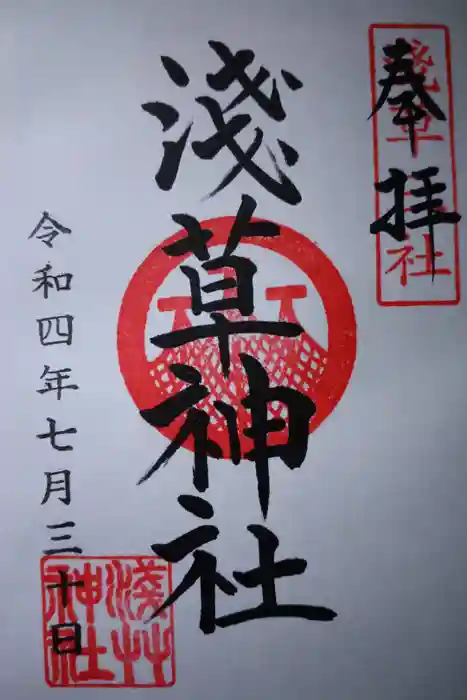 奉拝
淺草三社
淺草神社
令和四年七月三十日
淺草神社